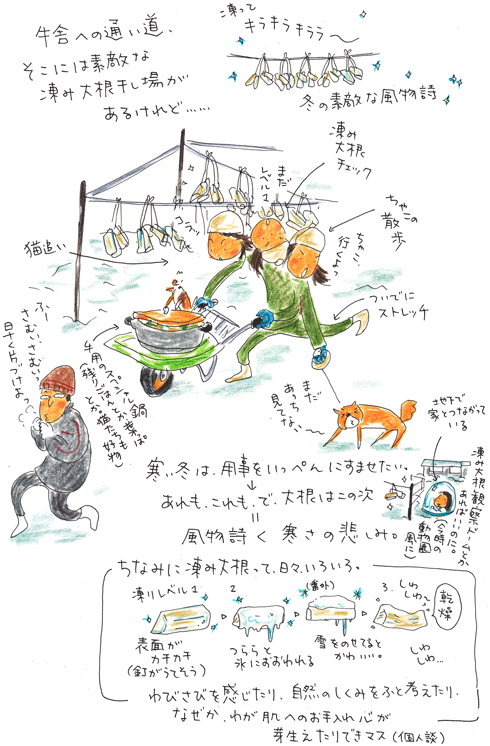 牛舎への通い道、
そこには素敵な
凍み大根干し場が
あるけれど……
凍って
キラキラキララ〜
冬の素敵な風物詩
凍み
大根
チェック
まだ
レベル1
ちゃこの
散歩
ちゃこ、
行くよっ
猫追い
ついでに
ストレッチ
ふー
さむいさむいっ
早く片づけよ
まだ
あっち
見てない〜
させ下で
家とつながって
いる
凍み大根観察ドームとか
あればいいのに。
(今時の
動物園
風に)
寒い冬は、用事をいっぺんにすませたい。
あれも、これも、で、大根はこの次
＝
風物詩く寒さの悲しみ。
ちなみに凍み大根って、日々いろいろ。
凍りレベル1
表面が
カチカチ
(釘がうてそう)
2
つららと
氷におおわれる
(番外)
雪をのせてると
かわいい。
3
しわ
しわ〜
乾燥
しわ
しわ…
わびさびを感じたり、自然のしくみをふと考えたり、
なぜか、わが肌へのお手入れ心が
芽生えたりできマス(個人談)